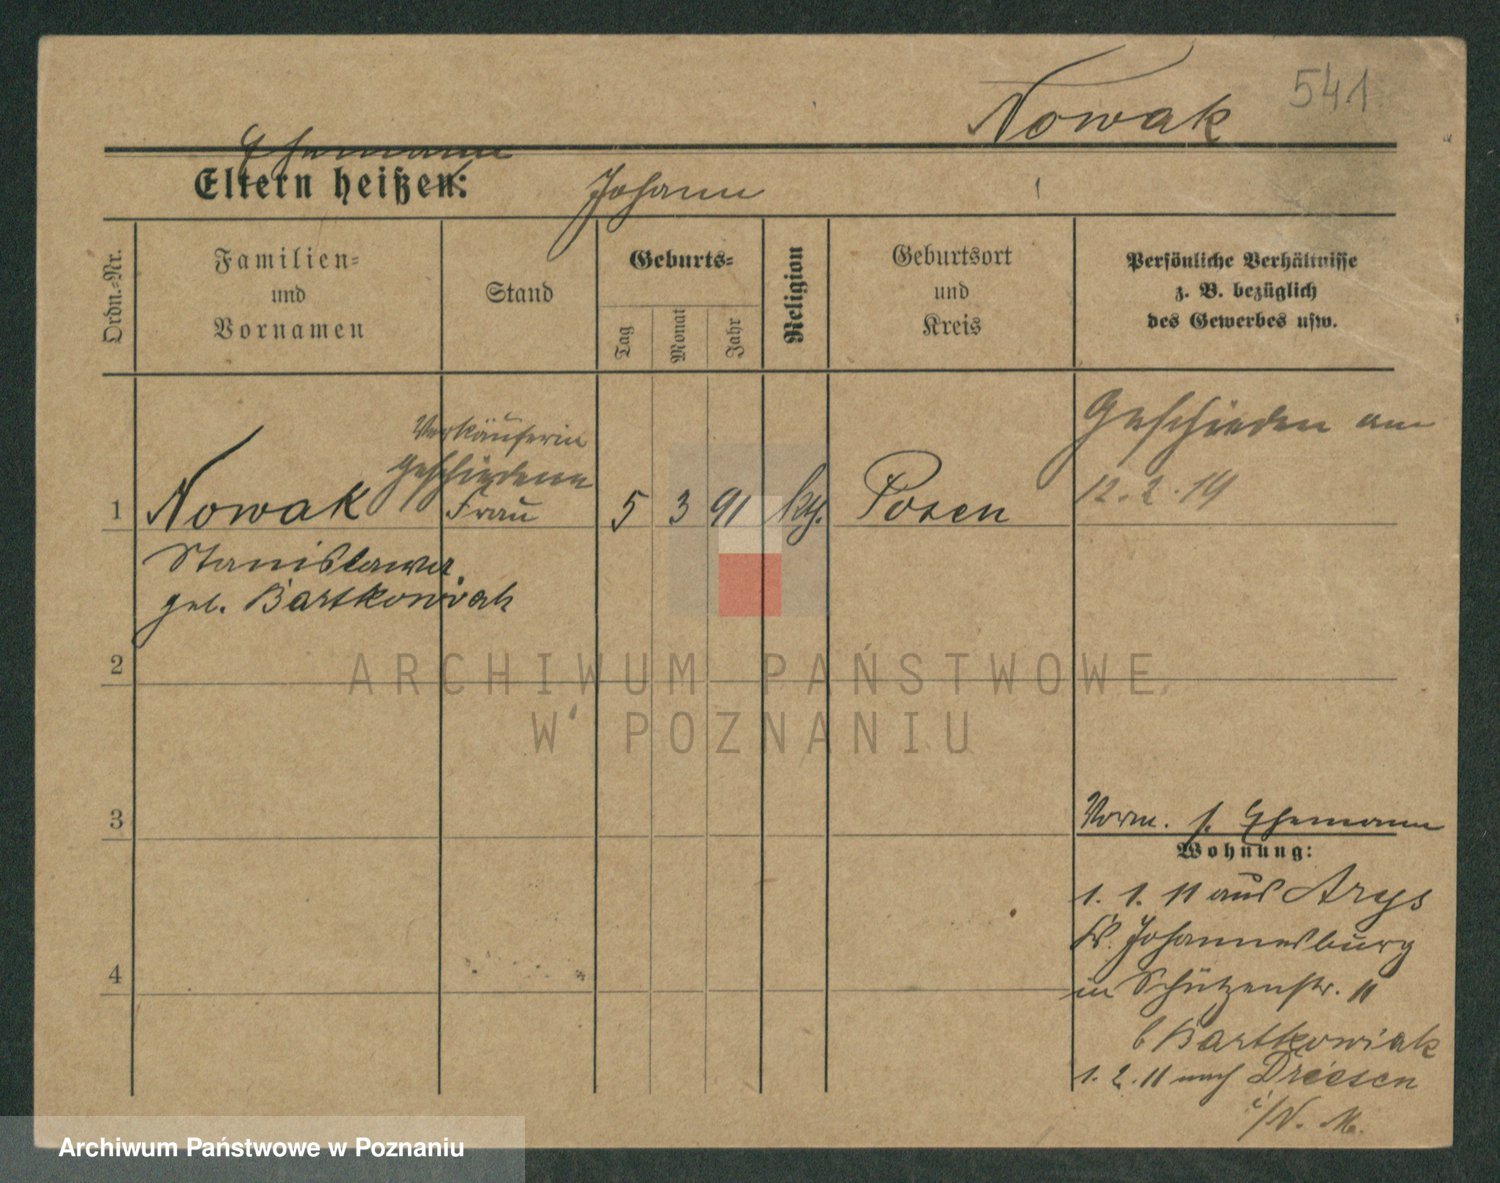 Nowak 541
Ehemann
Eltern heißen: Johann
Ordn.-Nr.
Familien-
und
Vornamen
Stand
Geburts-
Tag
Monat
Jahr
Religion
Geburtsort
und
Kreis
Persönliche Verhältnisse
z. B. bezüglich
des Gewerbes usw.
Verkäuferin
geschiedene
1 Nowak Frau 5 3 91 kth. Posen
Stanislawa
geb. Bartkowiak
Geschieden am
12.2.19
2
3
4
Vorm. s. Ehemann
Wohnung:
1. 1. 11 aus Arys
Kr. Johannesburg
in Schützenstr. 11
b Bartkowiak
1. 2. 11 nach Driesen
i/N. M.
ARCHIWUM PAŃSTWOWE
W POZNANIU
Archiwum Państwowe w Poznaniu